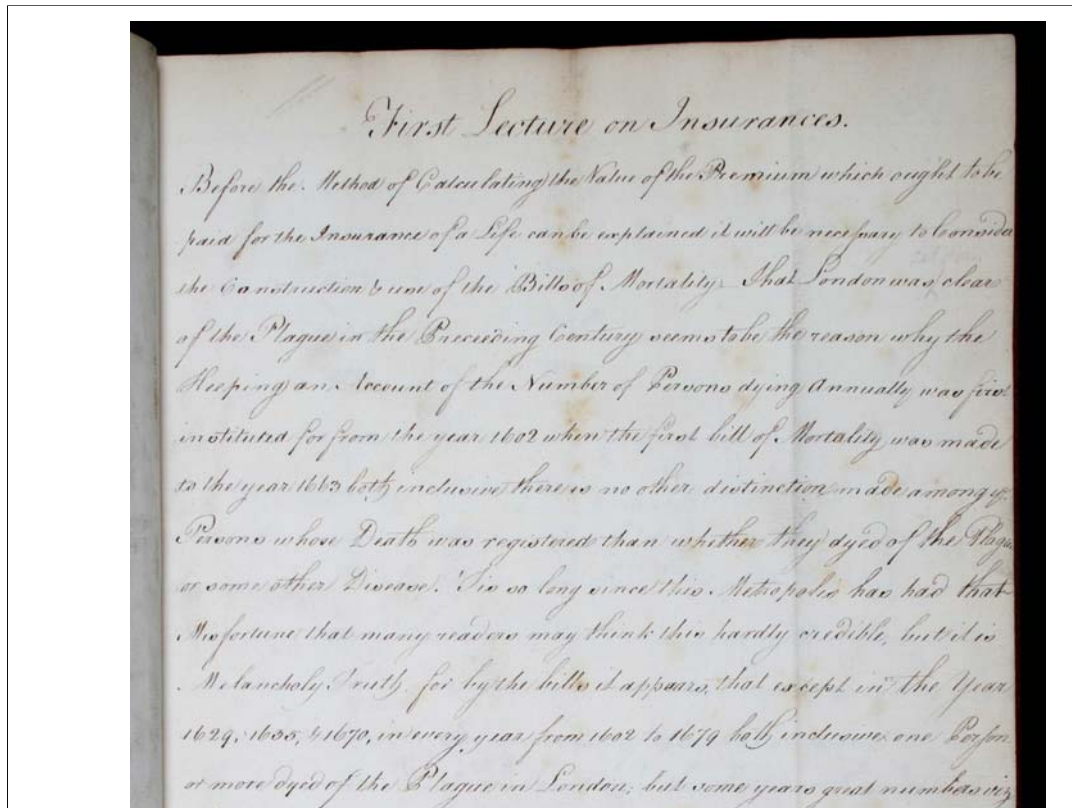 First Lecture on Insurances.
Before the Method of Calculating the Value of the Premium which ought to be
paid for the Insurance of a Life can be explained it will be necessary to Consider
the Construction & use of the Bills of Mortality. That London was clear
of the Plague in the Preceeding Century seems to be the reason why the
Keeping an Account of the Number of Persons dying Annually was first
instituted for from the year 1602 when the first bill of Mortality was made
to the year 1663 both inclusive there is no other distinction made among ye.
Persons whose Death was registered than whether they dyed of the Plague
or some other Disease. Tis so long since this Metropolis has had that
Misfortune that many readers may think this hardly credible, but it is
Melancholy Truth, for by the bills it appears, that except in the Year
1629, 1635, & 1670, in every year from 1602 to 1679 both inclusive one Person
or more dyed of the Plague in London; but some years great numbers viz